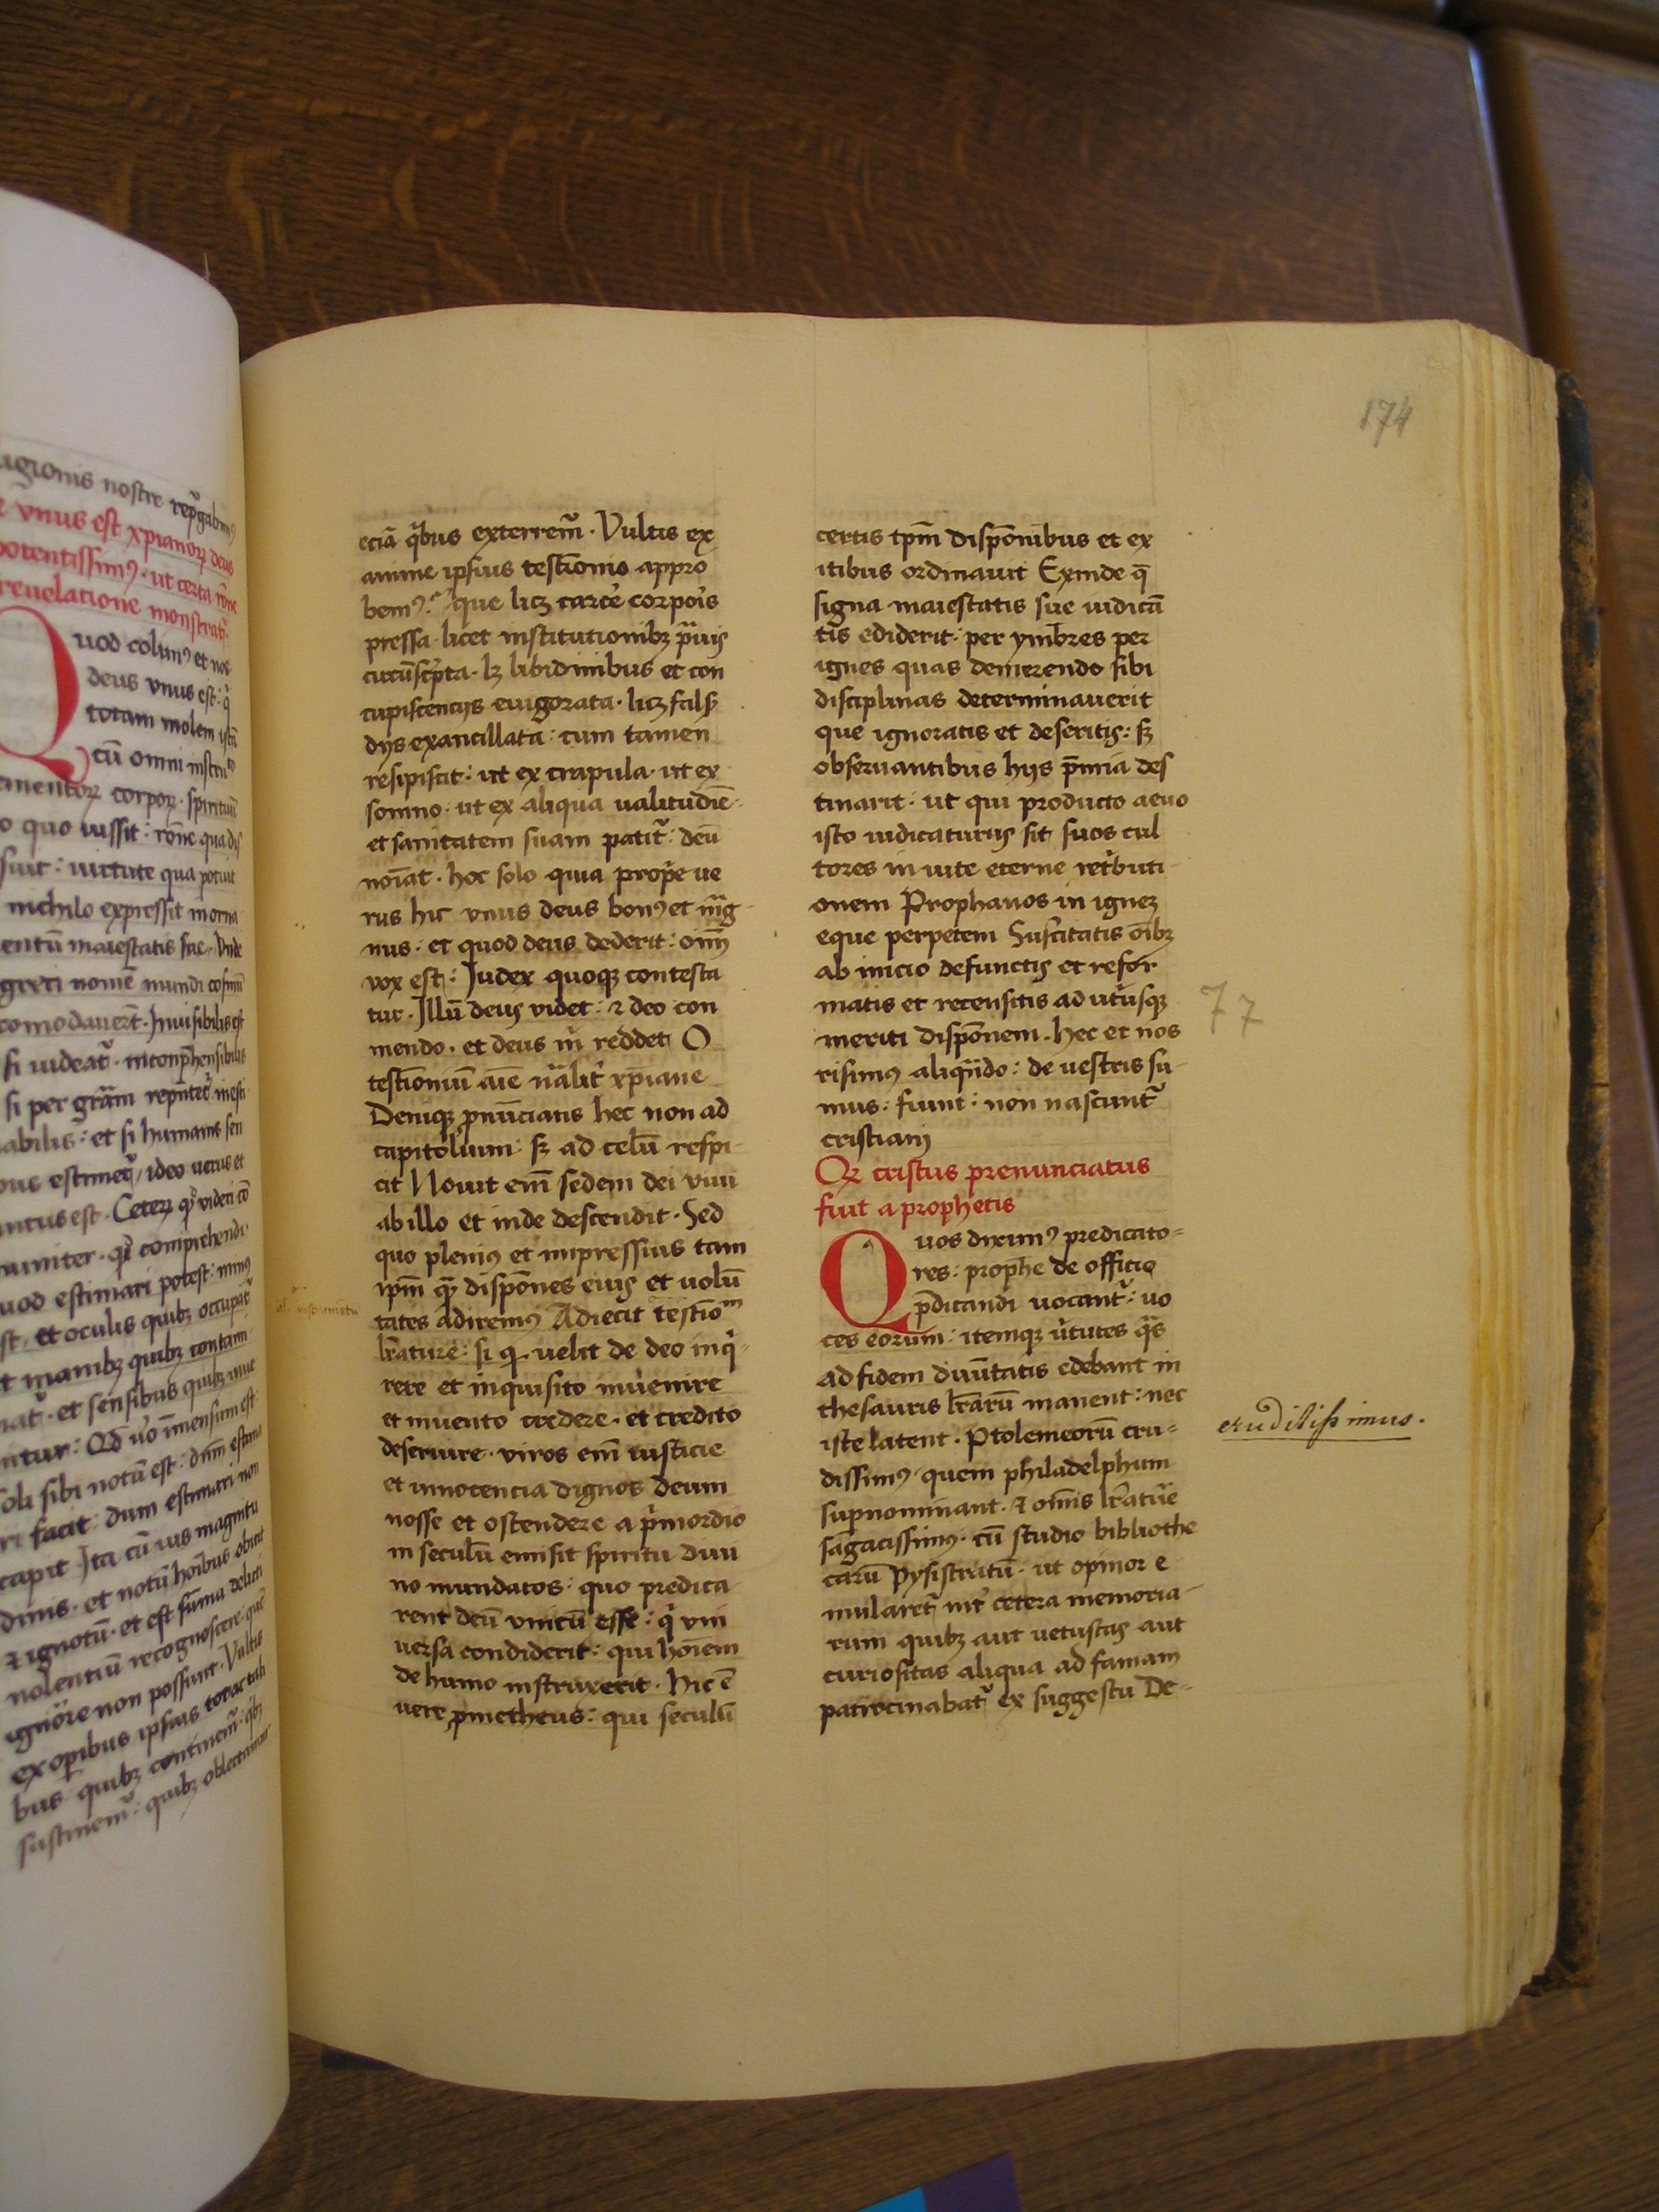 igionis nostre repᷓgabimꝰ
e vnus est xpianoꝝ deus
potentissimꝰ · ut certa rōne
reuelatione monstratᷓ
Quod colimꝰ et nos
deus vnus est : q̇
totam molem istā
cū omni instrūto
ementoꝝ corpoꝝ · spirituū
o quo iussit : rōne qua dis
suit : uirtute qua potuit
nichilo expressit in orna
entū maiestatis sue · Vnde
greci nomē mundi cosmū
comodauerūt · Inuisibilis est
si uideatᷓ · incōprehensibilis
si per grām repn̄tetᷓ inesti
abilis : et si humanis sen
bus estimetᷓ / ideo uerus et
antus est · Ceteꝝ qd̓ videri cō
muniter · qd̓ comprehendi
uod estimari potest : minꝰ
st · et oculis quibꝫ occupatᷓ
t manibꝫ quibꝫ contami
natᷓ · et sensibus quibꝫ inue
nitur : Qd̓ uo īmensum est ·
soli sibi notū est : dum estima
ri facit : dum estimari non
capit Ita eū uis magnitu
dinis · et notū hoībus obiicit
⁊ ignotū · et est sūma delicti
nolentiū recognoscere · quē
ignōre non possunt · Vultis
ex opibus ipsius tot ac tali
bus quibꝫ continemᷓ · qͥbꝫ
sustinemᷓ : quibꝫ oblectamur
174
eciā q̇bus exterremᷓ · Vultis ex
anime ipsius testīonio appro
bemꝰ · que licꝫ carcē corpoīs
pressa · licet institutionibꝫ prauis
circūscp̄ta · lꝫ libidinibus et con
cupiscencijs euigorata · licꝫ falsis
dijs exancillata : cum tamen
resipiscit : ut ex crapula · ut ex
somno · ut ex aliqua ualitudīe
et sanitatem suam patitᷓ : deū
noīat · hoc solo quia propͥe ue
rus hic vnus deus bonꝰ et mag
nus · et quod deus dederit : omī
vox est : Iudex quoqꝫ contesta
tur · Illū deus videt : ⁊ deo con
mendo · et deus m̄ reddet O
testīoniū aīe nᷓalitᷓ xpiane
Deniqꝫ ꝓnūcians hec non ad
capitolium : sꝫ ad celū respi
cit Nouit enī sedem dei viui
ab illo et inde descendit · Sed
quo pleniꝰ et impressius tam
ipm̄ qᷓ dispōnes eius et uolū
tates adiremꝰ Adiecit testīom
al. instrumētū
lrāture : si q̇ · uelit de deo inq̇
rere et inquisito inuenire
et inuento credere · et credito
deseruire · viros enī iusticie
et innocencia dignos deum
nosse et ostendere a pͥmordio
in seculū emisit spiritu diui
no mundatos · quo predica
rent deū vnicū esse : q̇ vni
uersa condiderit : qui hoīem
de humo instruxerit · Hic ē
uere ꝓmetheus : qui seculū
certis tpm̄ dispōnibus et ex
itibus ordinauit Exinde q̄
signa maiestatis sue iudicā
tis ediderit : per ymbres per
ignes quas demerendo sibi
disciplinas determinauerit
que ignoratis et deseritis : sꝫ
obseruantibus hijs p̄mia des
tinarit · ut qui producto aeuo
isto iudicaturus sit suos cul
tores in uite eterne retͥbuti
onem Prophanos in ignez
eque perpetem Suscitatis oībꝫ
ab inicio defunctis et refor
matis et recensitis ad utͥusqꝫ
77
meriti dispōnem · hec et nos
risimꝰ aliqn̄do : de uestris su
mus : fiunt : non nascuntᷓ
cristiani
Qꝫ cristus prenunciatus
fuit a prophetis
Quos diximꝰ predicato=
res : prophe de officio
p̄dicandi uocantᷓ : uo
ces eorum : itemqꝫ ūtutes qᷓs
ad fidem diuītatis edebant in
thesauris lrārū manent : nec
iste latent · Ptolemeorū eru=
dissimꝰ · quem philadelphum
eruditissimus.
supnominant · ⁊ omīs lrāture
sagacissimꝰ · cū studio bibliothe
carū Pysistratū · ut opinor e
mularetᷓ int̓ cetera memoria
rum quibꝫ aut uetustas aut
curiositas aliqua ad famam
patrocinabatᷓ ex suggestu De=